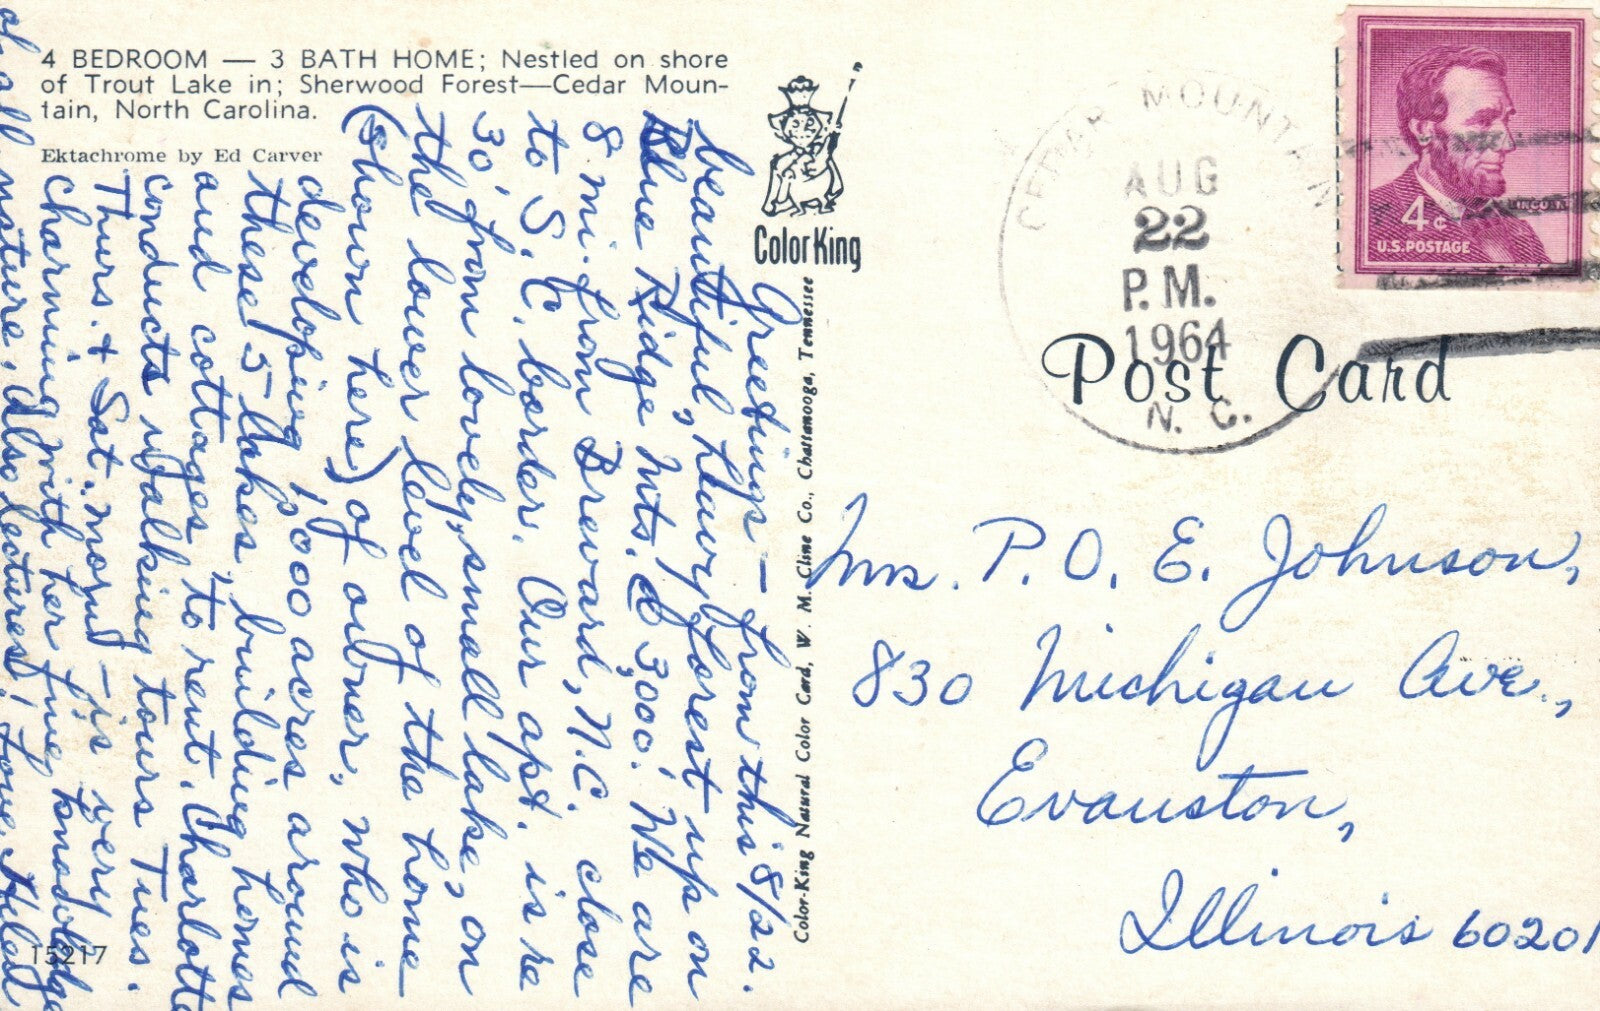 4 BEDROOM — 3 BATH HOME; Nestled on shore
of Trout Lake in; Sherwood Forest—Cedar Moun-
tain, North Carolina.
Ektachrome by Ed Carver
8/22.
Greetings — from this
beautiful, heavy forest up on
Blue Ridge Mts. @ 3,000.' We are
8 mi. from Brevard, N.C. close
to S. C. border. Our apt. is
30' from lovely, small lake, on
the lower level of the home
(shown here) of owner, who is
developing 1,000 acres around
these 5 lakes, building homes
and cottages, to rent. Charlotte
conducts walking tours Tues.
Thurs. + Sat. morn — is very
charming with her fine knowledge
of all nature. Also lectures! Love, Helen
15217
Color King
Color-King Natural Color Card, W. M. Cline Co., Chattanooga, Tennessee
CEDAR MOUNTAIN
AUG
22
P.M.
1964
N. C.
LINCOLN
4¢
U.S. POSTAGE
Post Card
Mrs. P. O. E. Johnson,
830 Michigan Ave.,
Evanston,
Illinois 60201